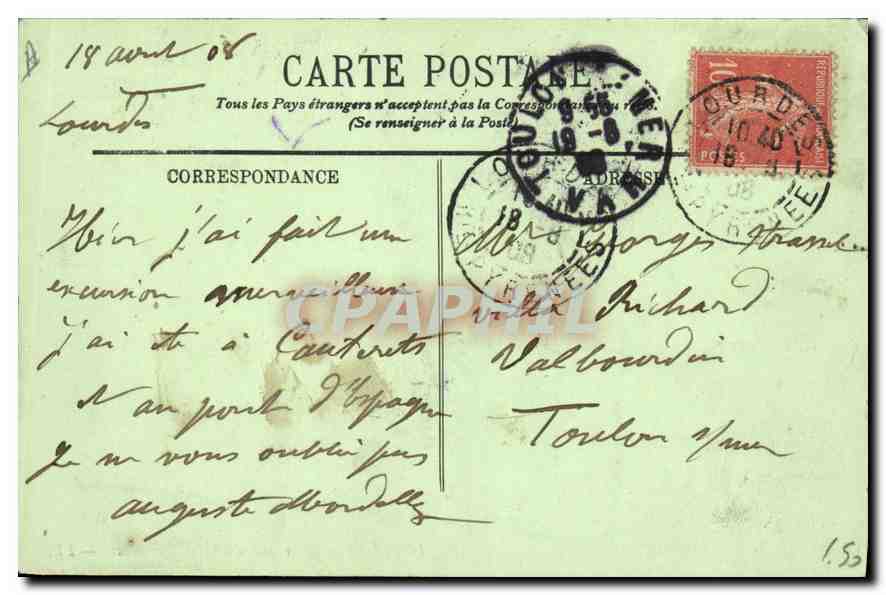 18 août 08
Lourdes
CARTE POSTALE
Tous les Pays étrangers n'acceptent pas la Correspondance au recto.
(Se renseigner à la Poste)
CORRESPONDANCE
ADRESSE
TOULON S MER
VAR
LOURDES
10 40
18 8
08
HTES PYRENEES
18 8
08
10
REPUBLIQUE FRANÇAISE
POSTES
Hier j'ai fait une
excursion merveilleuse
j'ai ete à Cauterets
et au pont d'Espagne
Je ne vous oublie pas
auguste
Mr Georges
villa Richard
Valbourdin
Toulon s/mer
CPAPHIL
1.50